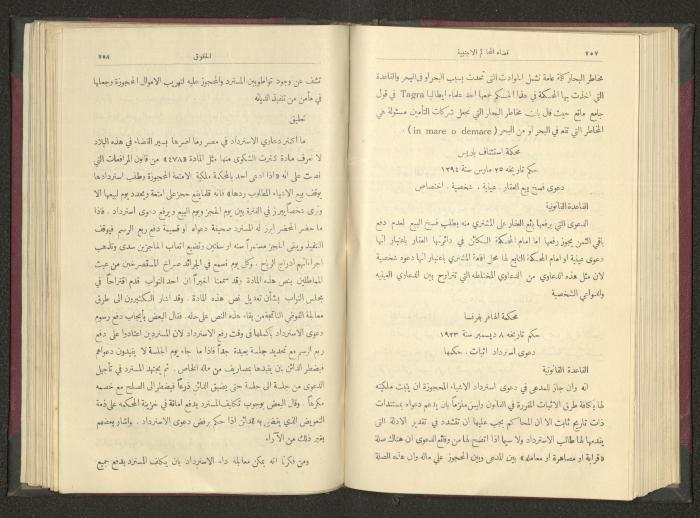 ٧٥٧ قضاء المحاكم الاجنبية
مخاطر البحار كلمة عامة تشمل الحوادث التي تحدث بسبب البحر او في البحر والقاعدة
التي اخذت بها المحكمة في هذا الحكم جمعها احد علماء ايطاليا Tagra في قول
جامع مانع حيث قال بان مخاطر البحار التي تجعل شركات التأمين مسئولة هي
المخاطر التي تقع في البحر او من البحر (in mare o demare)
محكمة استئناف باريس
حكم تاريخه ٢٥ مارس سنة ١٩٢٤
دعوى فسخ بيع العقار . عينية . شخصية . اختصاص
القاعدة القانونية
الدعوى التي يرفعها بائع العقار على المشتري منه بطلب فسخ البيع لعدم دفع
باقي الثمن يجوز رفعها اما امام المحكمة الكائن في دائرتها العقار باعتبار انها
دعوى عينية او امام المحكمة التابع لها محل اقامة المشتري باعتبار انها دعوه شخصية
لان مثل هذه الدعاوي من الدعاوي المختلطه التي تتراوح بين الدعاوي العينيه
والدواعي الشخصية
محكمة الهافر بفرنسا
حكم تاريخه ٨ ديسمبر سنة ١٩٢٣
دعوى استرداد اثبات . حكمها
القاعدة القانونية
انه وان جاز للمدعي في دعوى استرداد الاشياء المحجوزة ان يثبت ملكيته
لها بكافة طرق الاثبات المقررة في القانون وليس ملزماً بان يدعم دعواه بمستندات
ذات تاريخ ثابت الا ان المحاكم يجب عليها ان تتشدد في تقدير الادلة التي
يقدمها لها طالب الاسترداد ولا سيما اذا اتضح لها من وقائع الدعوى ان هناك صلة
«قرابة او مصاهرة او معامله» بين المدعي وبين المحجوز علي ماله وان هذه الصلة
الحقوق ٧٥٨
تشف عن وجود تواطؤ بين المسترد والمحجوز عليه لتهريب الاموال المحجوزة وجعلها
في مأمن من تنفيذ الدين له
تعليق
ما اكثر دعاوي الاسترداد في مصر وما اضرها بسير القضاء في هذه البلاد
لا نعرف مادة كثرت الشكوى منها مثل المادة «٤٧٨» من قانون المرافعات التي
نصت على انه «اذا ادعى احد بالمحكمة ملكية الامتعة المحجوزة وطلب استردادها
يوقف بيع الاشياء المطلوب ردها» فانه قلما يقع حجز على امتعة ويحدد يوم لبيعها الا
ونرى شخصاً يبرز في الفترة بين يوم الحجز ويوم البيع ويرفع دعوى استرداد . فاذا
ما حضر المحضر ابرز له المسترد صحيفة دعواه او قسيمة دفع ربع الرسم فيوقف
التنفيذ ويبقى الحجز مستمراً سنه او سنتين وتضيع اتعاب الحاجزين سدى وتذهب
اجراءاتهم ادراج الرياح . وكل يوم نسمع في الجرائد صراخ المستصرخين من عبث
المماطلين بنص هذه المادة وقد سمعنا اخيراً ان احد النواب قدم اقتراحاً في
مجلس النواب بشأن تعديل نص هذه المادة . وقد اشار الكثيرون الى طرق
معالجة الفوضي الناتجة من بقاء هذه النص على حاله . فقال البعض بايجاب دفع رسوم
دعوى الاسترداد بأكملها في وقت رفع الاسترداد لان المستردين اعتادوا على دفع
ربع الرسم مع تحديد جلسة بعيدة جداً فاذا ما جاء يوم الجلسة لا يقيدون دعواهم
فيضطر الدائن بان يقيدها بمصاريف من ماله الخاص . ثم يجتهد المسترد في تأجيل
الدعوى من جلسة الى جلسة حتى يضيق الدائن ذرعاً فيضطر الى الصلح مع خصمه
مكرهاً . وقال البعض بوجوب تكليف المسترد بدفع امانة في خزينة المحكمه على ذمة
التعويض الذي يقضى به للدائن اذا حكم برفض دعوى الاسترداد . واشار بعضهم
بغير ذلك من الآراء
ومن فكرنا انه يمكن معالجة داء الاسترداد بان يكلف المسترد بدفع جميع